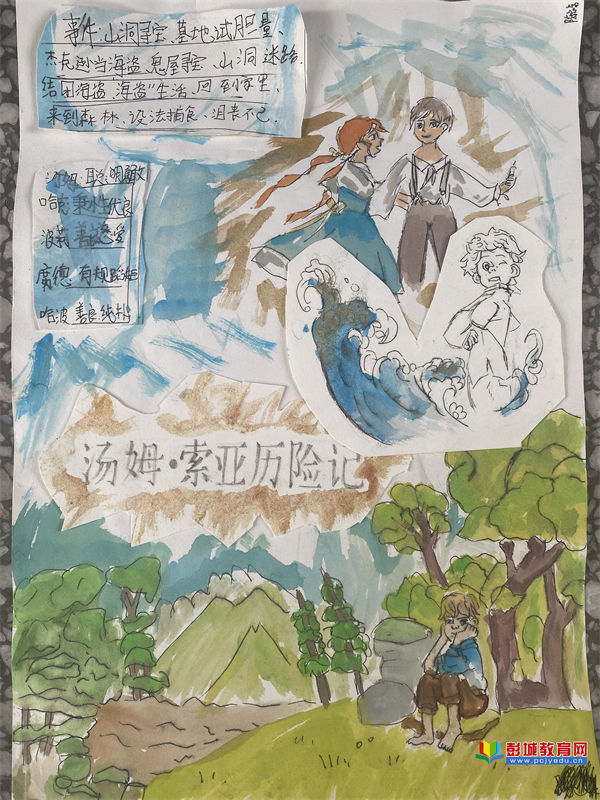 事件:山洞寻宝、墓地试胆量、
杰克逊当海盗、鬼屋寻宝、山洞迷路.
结团海盗、海盗"生活、回到家里、
来到森林、设法捕食、沮丧不已.
汤姆:聪明勇敢
哈克 秉性优良
波莉 善良慈爱
席德 有规蹈矩
哈波 善良纯朴
汤姆·索亚历险记
彭城教育网
www.pcjyedu.cn